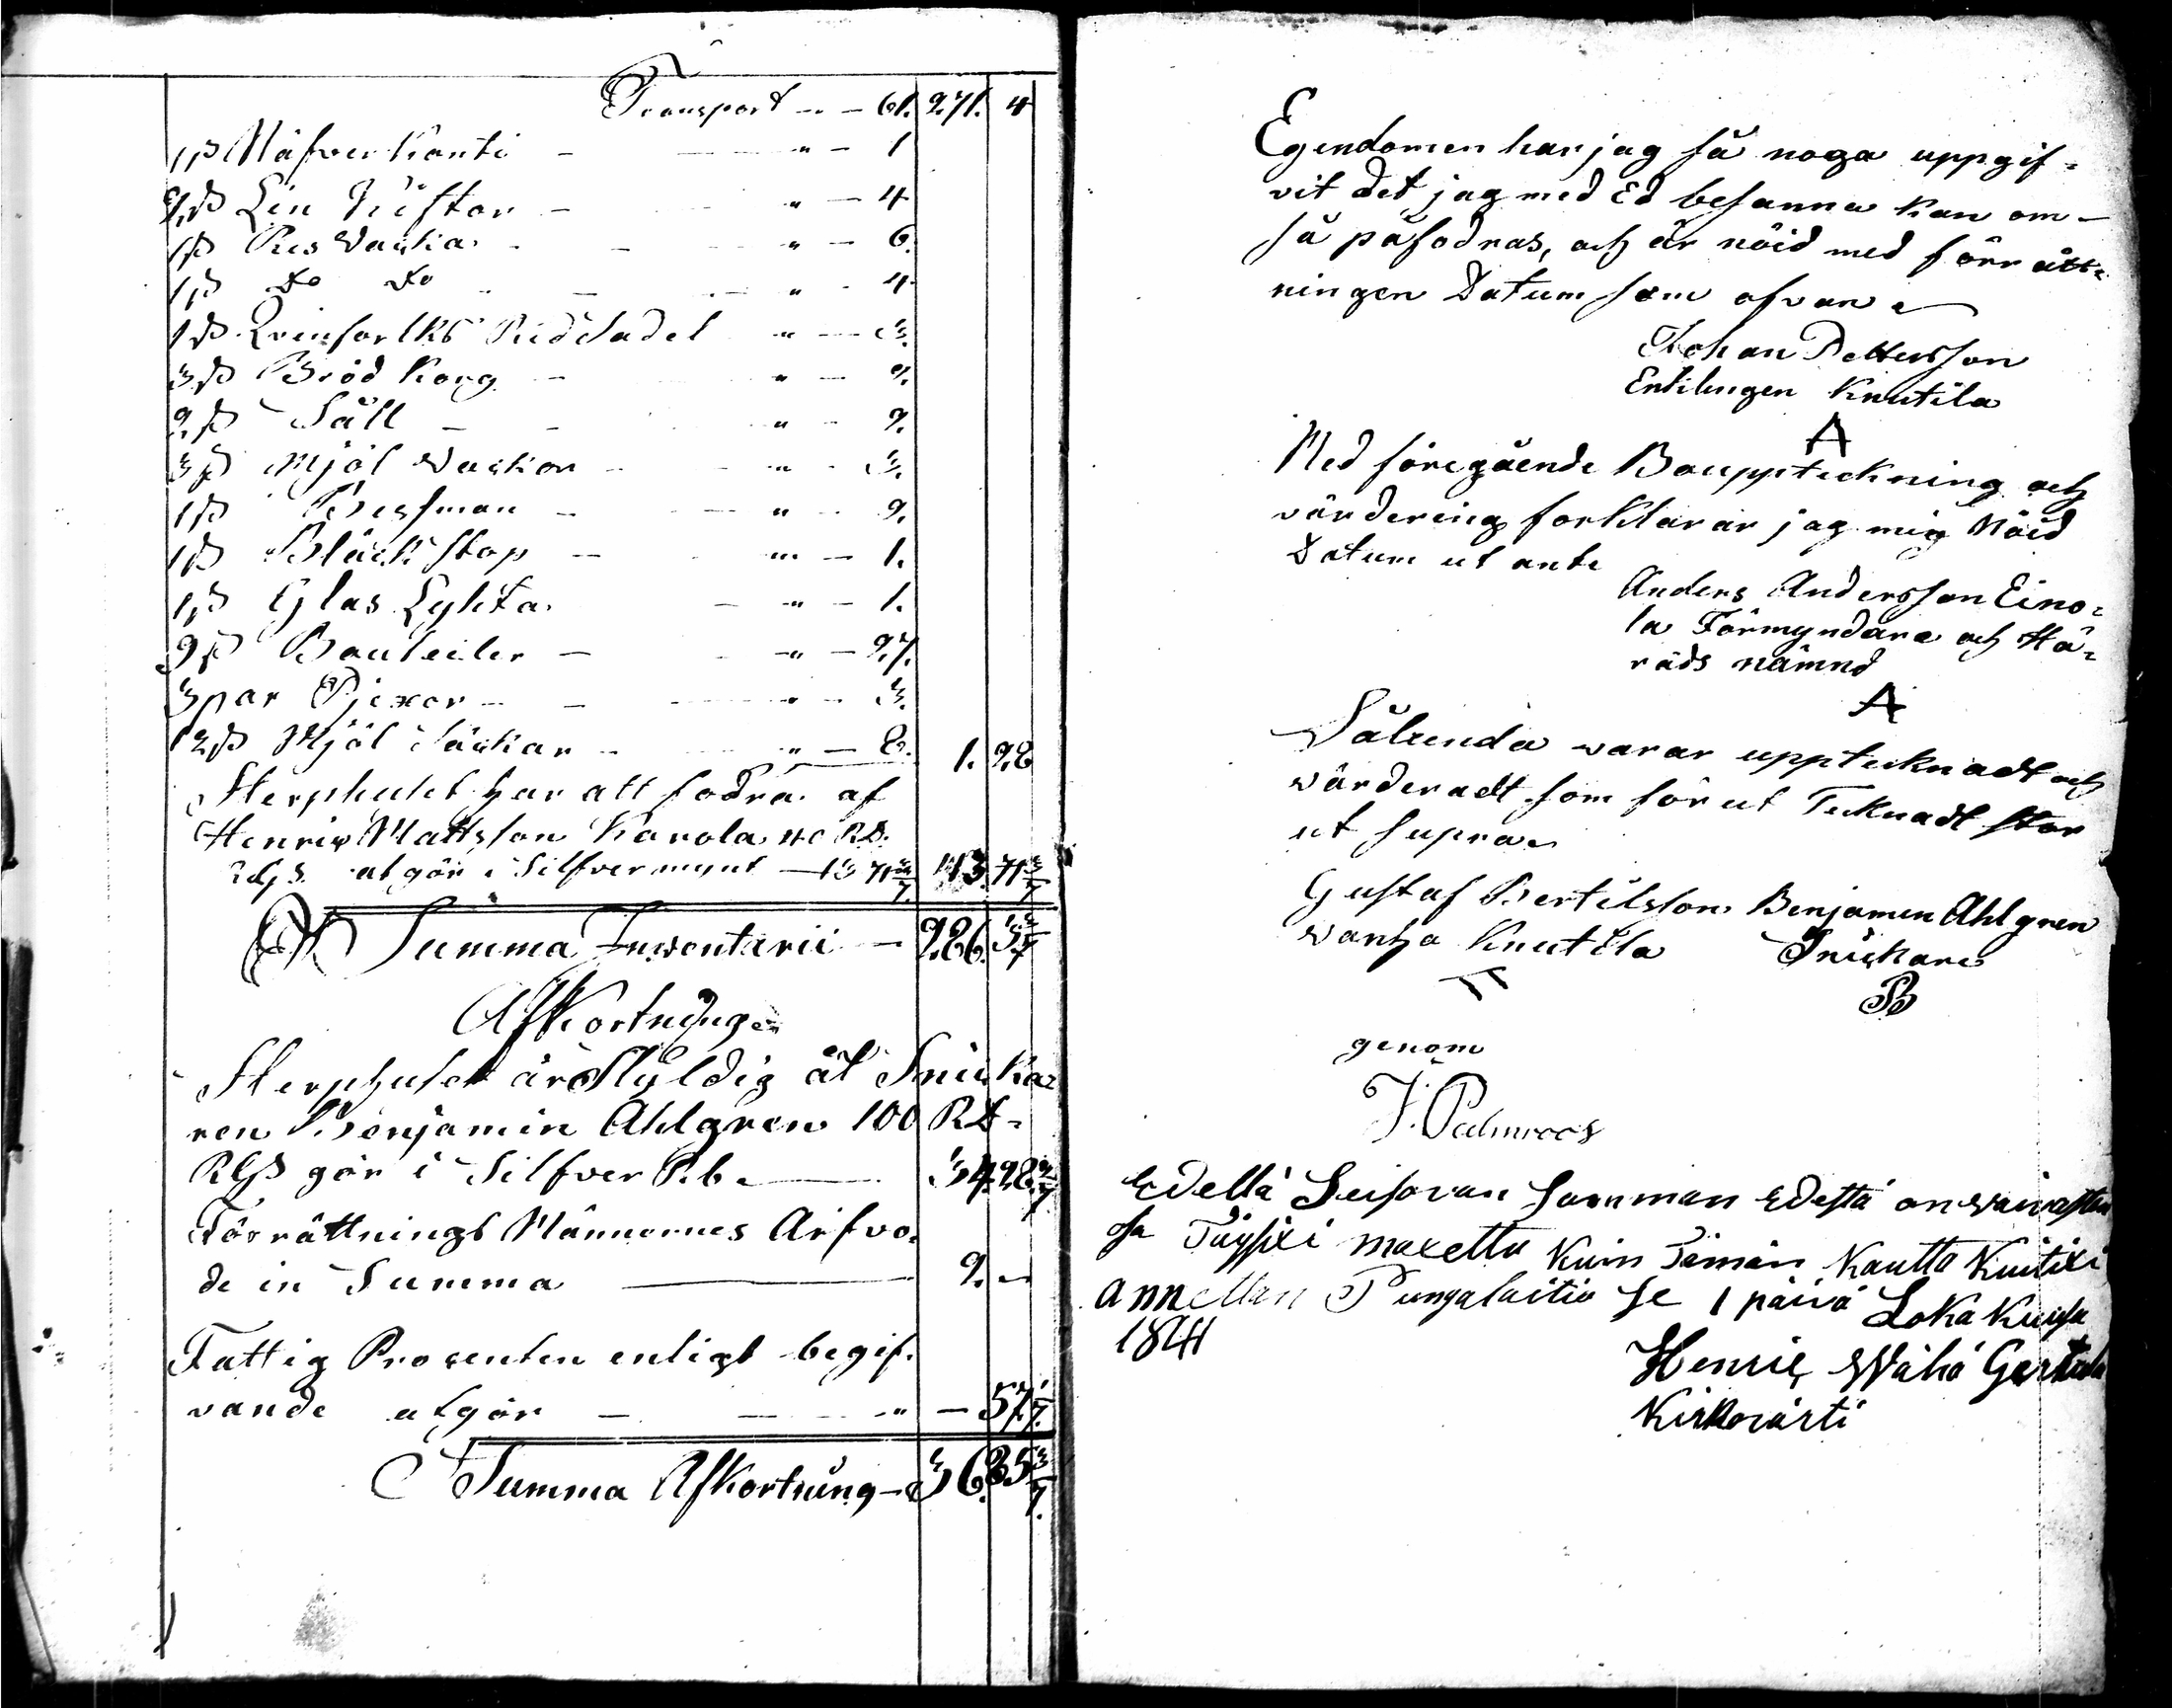 Transport -- - 61. 271. 4
1 st Näfver Konti - " - 1
2 st Lin Häftor - " - 4
1 st Res Wacka - " - 6.
1 st do do - " - 4
1 st Qvinfolks Ridsadel " - 3.
3 st Bröd Korg - " - 2.
2 st Såll - " - 2.
3 st Mjöl Wackor - " - 3.
1 st Besman - " - 2.
1 st Bläck stop - " - 1.
1 st Glas Lykta - " - 1.
9 st Bouteiler - " - 27.
3 par Pjexor - " - 3.
12 st Mjöl Säckar - " - 8. 1. 28
Sterphuset har att fodra af
Henric Mattsson Karola 40 RD.
RGS. utgör i Silfvermynt - 13 71 3/7. 13. 71 3/7
Summa Inventarii - 286. 3 3/7
Afkortning
Sterphuset är Skyldig åt Snicka=
ren Benjamin Ahlgren 100 RD=
RGS gör i Silfver Rb. 34. 28 4/7
Förrättnings Männernes Arfvo=
de in Summa 2. -
Fattig Procenten enligt begif=
vande utgör - " - 57 1/7.
Summa Afkortning - 36. 85 5/7.
Egendomen har jag så noga uppgif=
vit det jag med Ed besanna kan om-
så påfodras, och är nöid med förrätt=
ningen Datum som ofvan
Johan Pettersson
Enklingen Knutila
A
Med föregående Bouppteckning och
värdering forklarar jag mig Nöid
Datum ut ante
Anders Andersson Eino=
la Förmyndare och Hä=
rads nämnd
A
Sålunda warar upptecknadt och
wärderadt som förut Tecknadt står
ut supra
Gustaf Bertilsson Benjamin Ahlgren
wanha Knutila Snickare
B
genom
J. Palmroos
Edellä Seisovan Summan Edestä on waivasten
osa Täysixi maxettu Kuin Tämän Kautta Kuitixi
annettan Pungalaitio se 1 päivä Loka Kuusa
1841
Henric Wähä Gertula
Kirkovärti